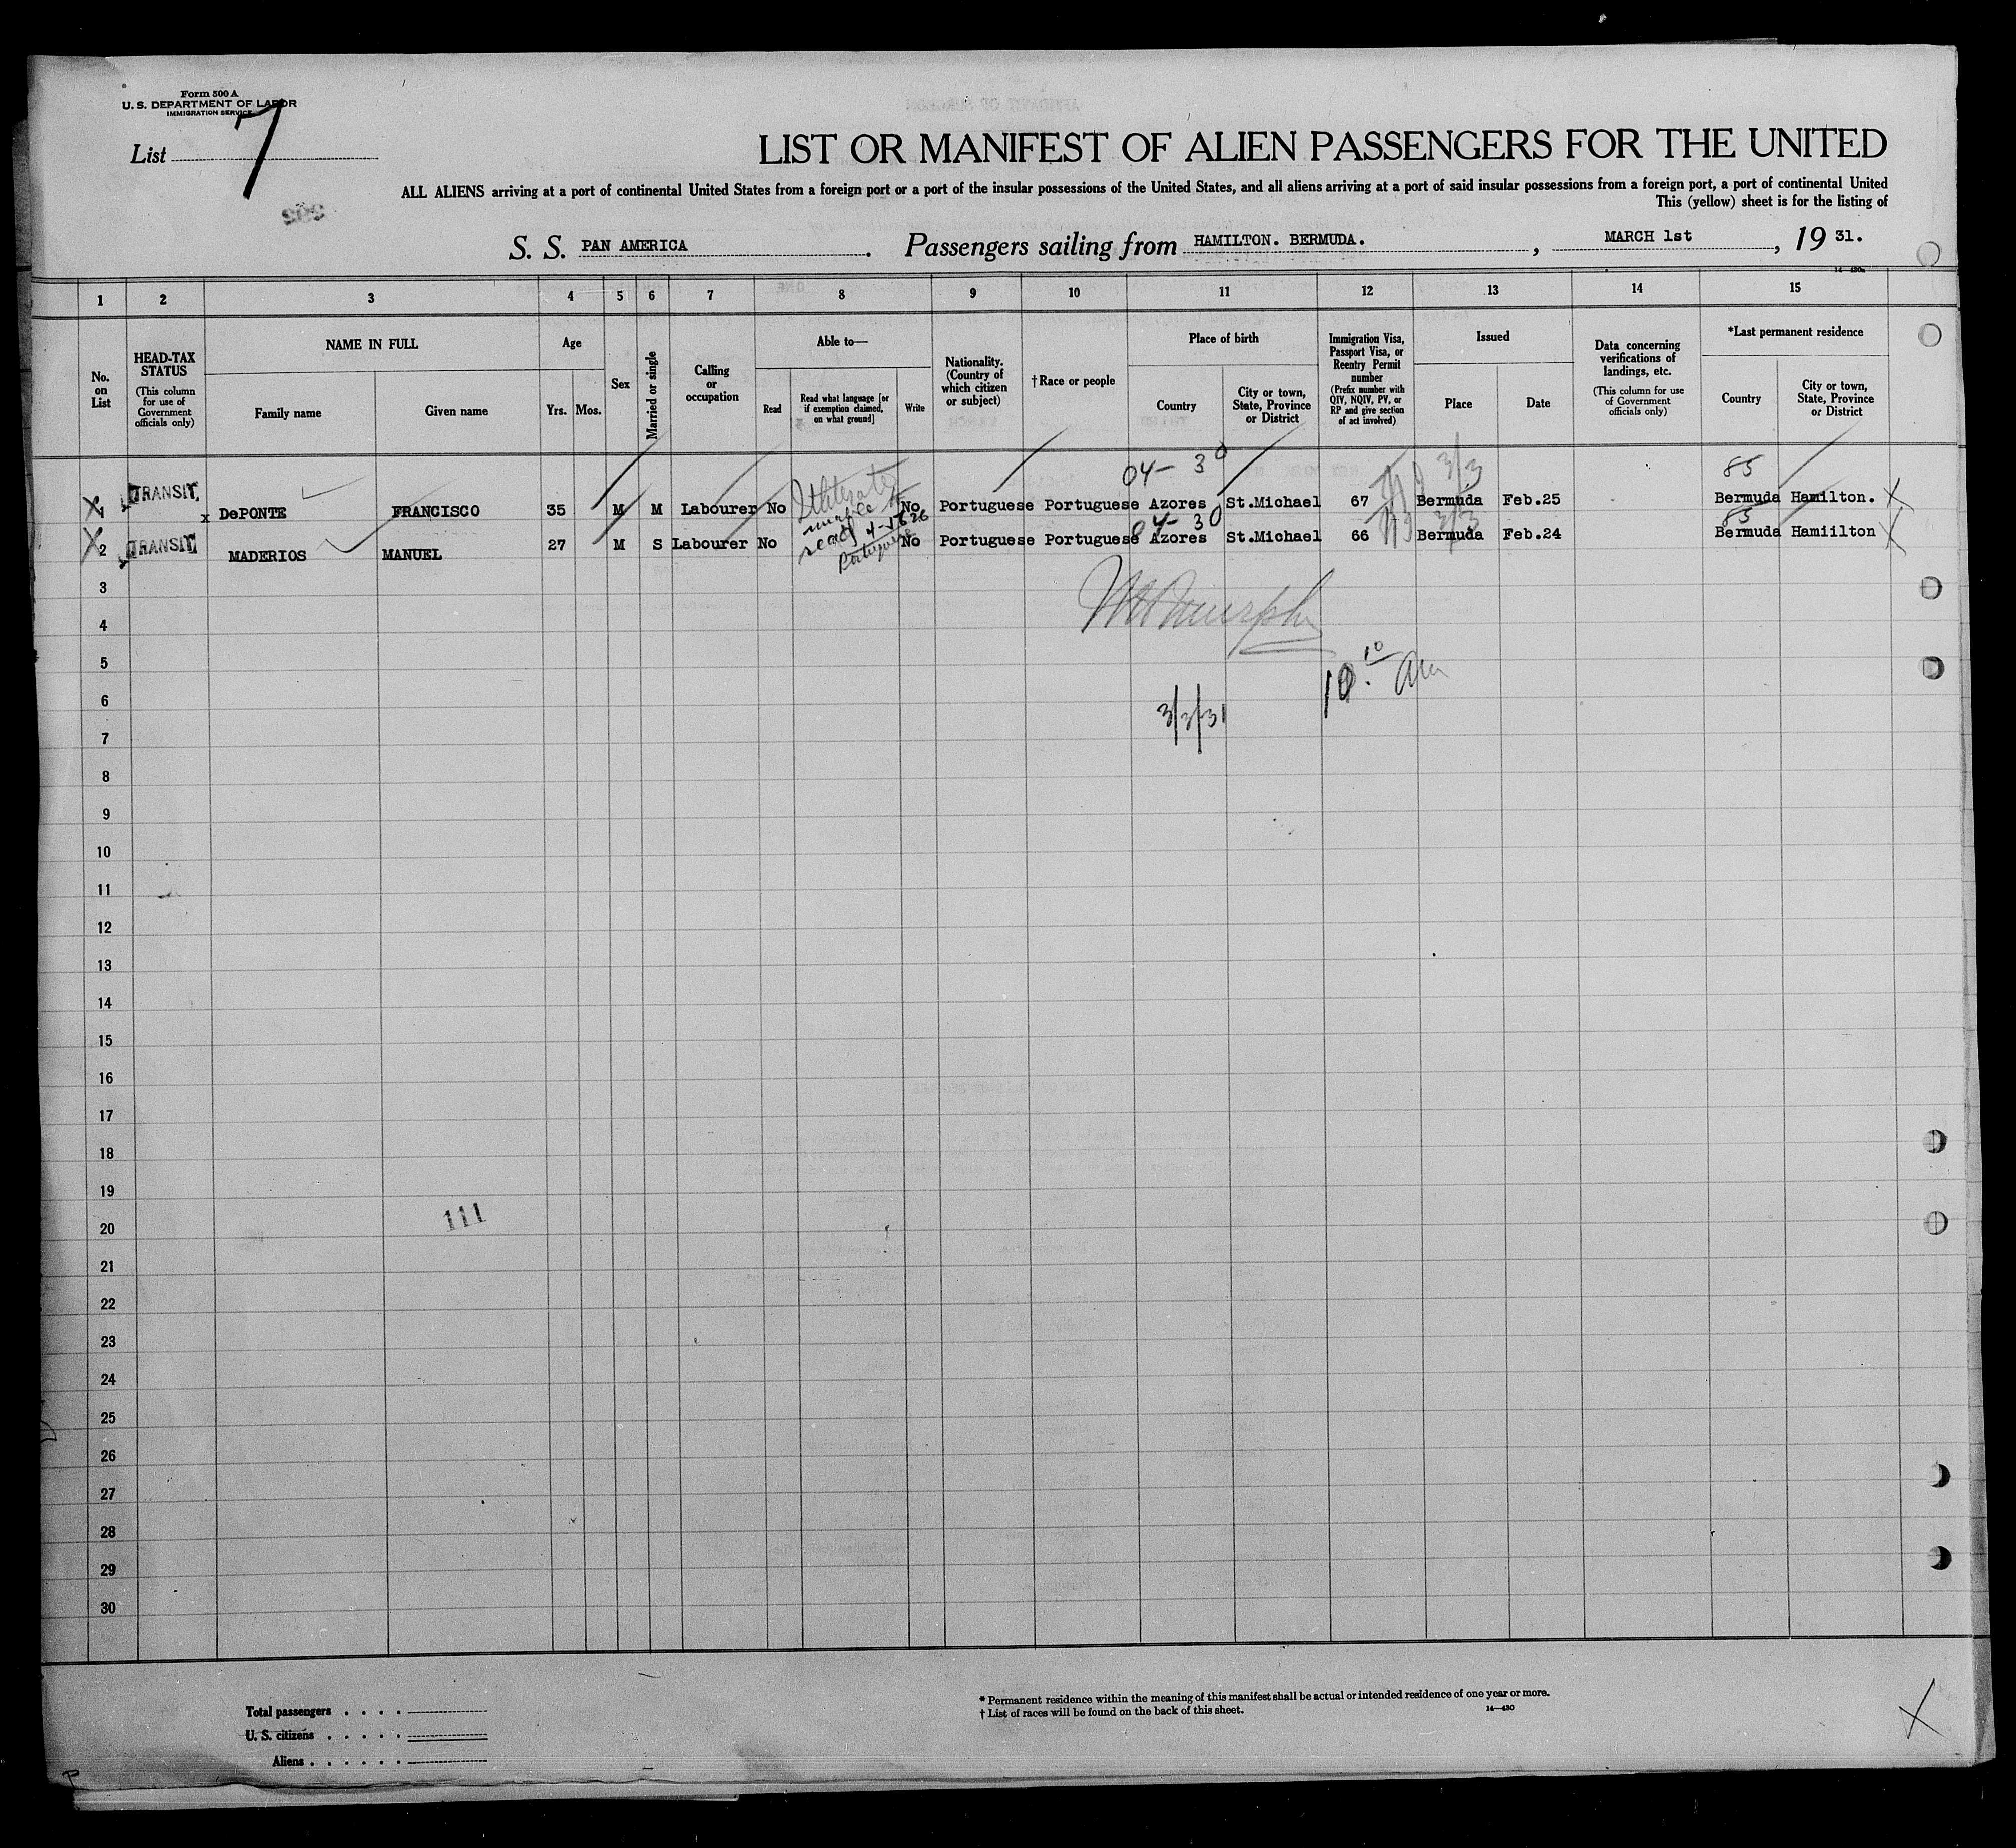 Form 500 A
U. S. DEPARTMENT OF LABOR
IMMIGRATION SERVICE
List 7
LIST OR MANIFEST OF ALIEN PASSENGERS FOR THE UNITED
ALL ALIENS arriving at a port of continental United States from a foreign port or a port of the insular possessions of the United States, and all aliens arriving at a port of said insular possessions from a foreign port, a port of continental United
This (yellow) sheet is for the listing of
S. S. PAN AMERICA. Passengers sailing from HAMILTON. BERMUDA., MARCH 1st, 19 31.
14—430a
1 2 3 4 5 6 7 8 9 10 11 12 13 14 15
No. on List
HEAD-TAX STATUS
(This column for use of Government officials only)
NAME IN FULL
Family name
Given name
Age
Yrs. Mos.
Sex
Married or single
Calling or occupation
Able to—
Read
Read what language [or if exemption claimed, on what ground]
Write
Nationality. (Country of which citizen or subject)
† Race or people
Place of birth
Country
City or town, State, Province or District
Immigration Visa, Passport Visa, or Reentry Permit number
(Prefix number with QIV, NQIV, PV, or RP and give section of act involved)
Issued
Place
Date
Data concerning verifications of landings, etc.
(This column for use of Government officials only)
*Last permanent residence
Country
City or town, State, Province or District
04- 30 3/3 85
1 TRANSIT. x DePONTE FRANCISCO 35 M M Labourer No No Portuguese Portuguese Azores St.Michael 67 Bermuda Feb.25 Bermuda Hamilton. X
04- 30 3/3 85
2 TRANSIT MADERIOS MANUEL 27 M S Labourer No read Portuguese No Portuguese Portuguese Azores St.Michael 66 Bermuda Feb.24 Bermuda Hamiilton X
3
4
5
10.10 am
6
3/3/31
7
8
9
10
11
12
13
14
15
16
17
18
19
111
20
21
22
23
24
25
26
27
28
29
30
Total passengers . . . .
U. S. citizens . . . . .
Aliens . . . . . .
* Permanent residence within the meaning of this manifest shall be actual or intended residence of one year or more.
† List of races will be found on the back of this sheet.
14—430
X